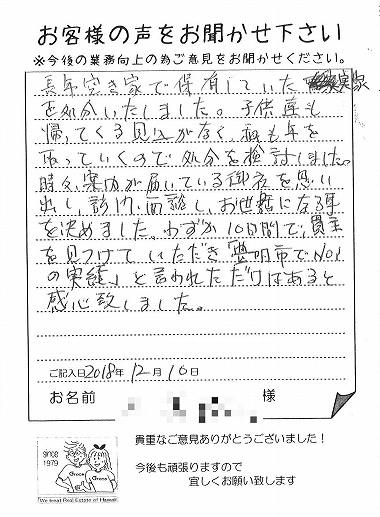 お客様の声をお聞かせ下さい
※今後の業務向上の為ご意見をお聞かせください。
長年空き家で保有していた実家
を処分いたしました。子供達も
帰ってくる見込がなく、私も年を
取っていくので処分を検討しました。
時々、案内が届いている御社を思い
出し、訪問、面談し、お世話になる事
を決めました。わずか10日間で、買主
を見つけていただき「豊明市でNo1
の実績」と言われただけはあると
感心致しました。
ご記入日2018年 12月 16日
お名前 様
since
1979
Grace Grace
We treat Real Estate of Hawaii
貴重なご意見ありがとうございました！
今後も頑張りますので
宜しくお願い致します